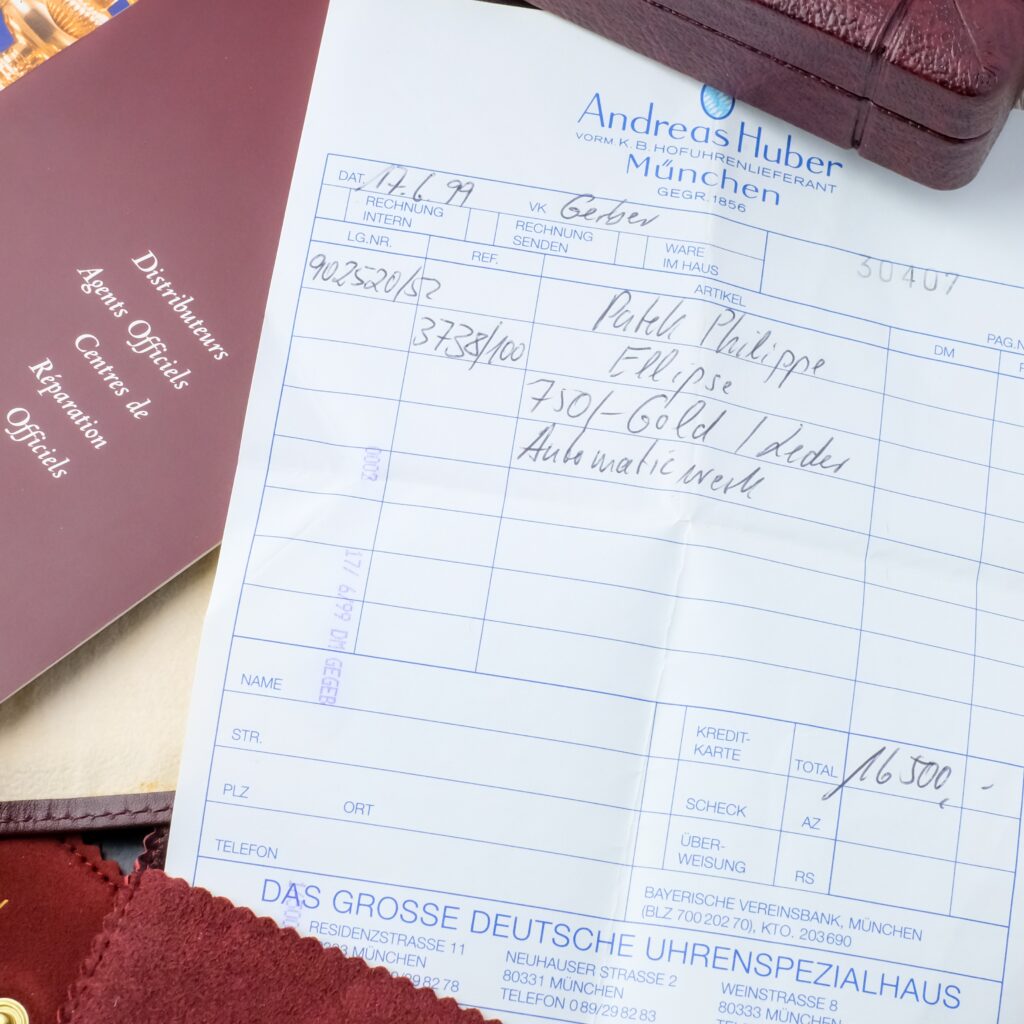 Distributeurs
Agents Officiels
Centres de
Réparation
Officiels
Andreas Huber
VORM. K. B. HOFUHRENLIEFERANT
München
GEGR. 1856
DAT. 17.6.99 VK Gerber
RECHNUNG INTERN
RECHNUNG SENDEN
WARE IM HAUS
30407
LG.NR. REF. ARTIKEL DM PAG.N
902520/52 Patek Philippe
3738/100 Ellipse
750/- Gold / Leder
Automaticwerk
0002
17/ 6/99 DM GEGEB
NAME
STR.
PLZ ORT
TELEFON
KREDIT-
KARTE
TOTAL 16500,-
SCHECK AZ
ÜBER-
WEISUNG
RS
BAYERISCHE VEREINSBANK, MÜNCHEN
(BLZ 700 202 70), KTO. 203690
DAS GROSSE DEUTSCHE UHRENSPEZIALHAUS
RESIDENZSTRASSE 11
MÜNCHEN
NEUHAUSER STRASSE 2
80331 MÜNCHEN
TELEFON 0 89/29 82 83
WEINSTRASSE 8
80333 MÜNCHEN